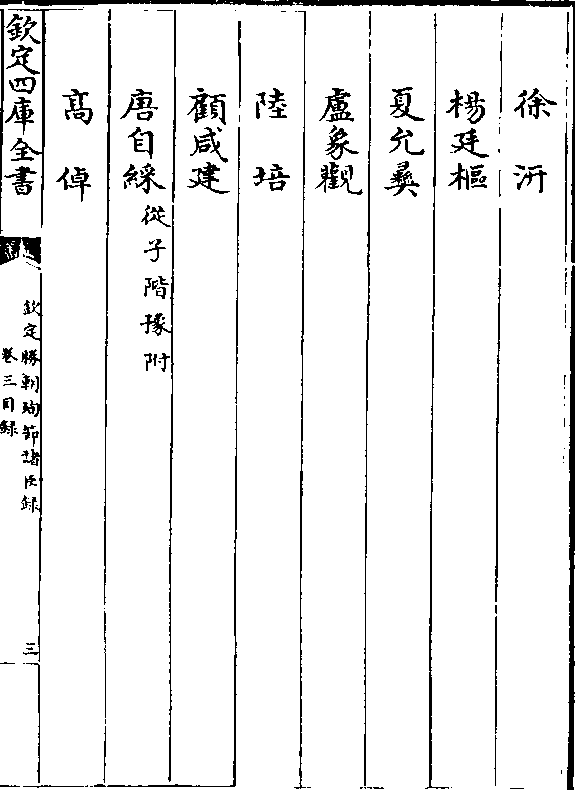 徐汧
楊廷樞
夏允彝
盧象觀
陸培
顧咸建
唐自綵從子階豫附
髙倬
欽定四庫全書
欽定勝朝殉節諸臣録
卷三目録
三